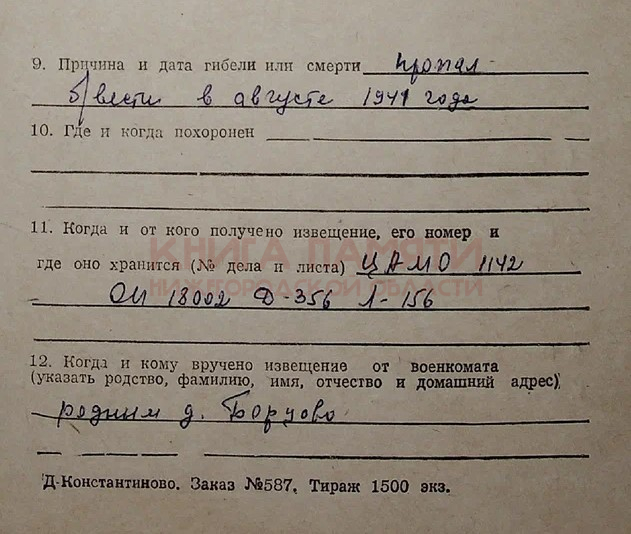 9. Причина и дата гибели или смерти пропал
б/вести в августе 1941 года
10. Где и когда похоронен
11. Когда и от кого получено извещение, его номер и
КНИГА ПАМЯТИ
где оно хранится (№ дела и листа) ЦАМО 1142
НИЖЕГОРОДСКОЙ ОБЛАСТИ
ОП 18002 Д-356 Л-156
12. Когда и кому вручено извещение от военкомата
(указать родство, фамилию, имя, отчество и домашний адрес)
родным д. Борцово
Д-Константиново. Заказ №587. Тираж 1500 экз.